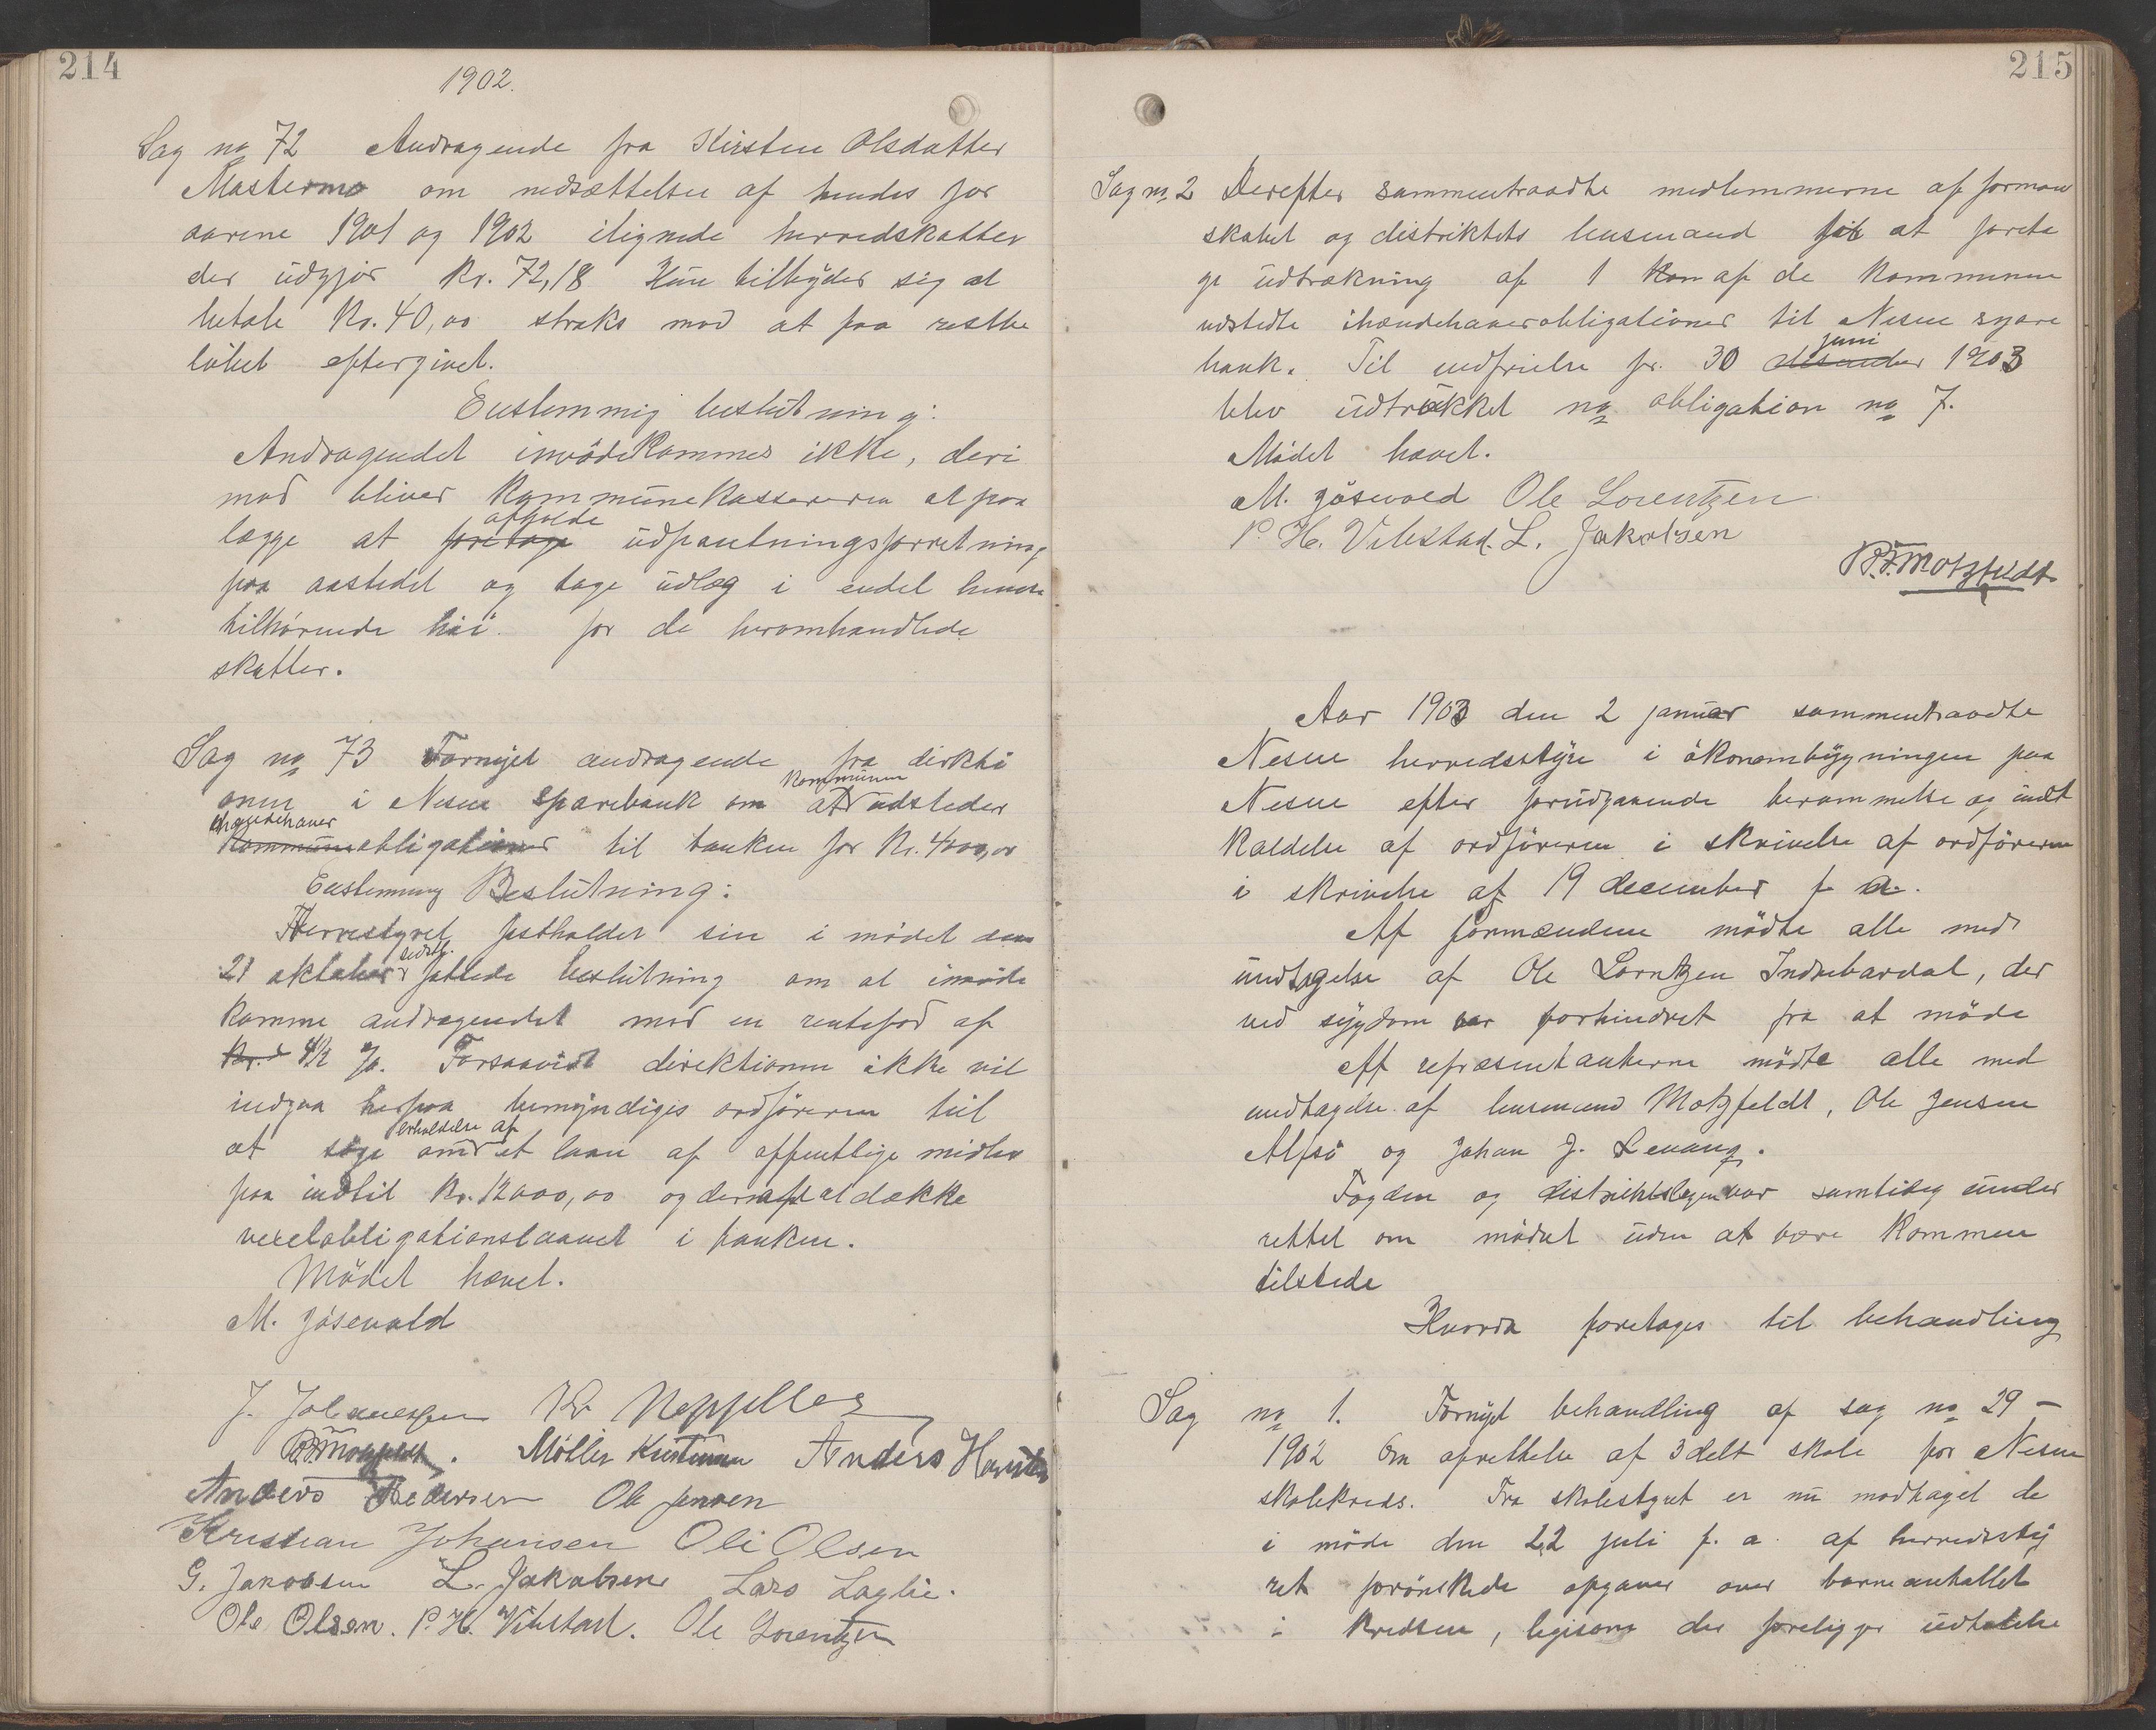 214
1902.
Sag no 72 Andragende fra Kirsten Olsdatter
Mastermo om nedsættelse af hendes for
aarene 1901 og 1902 ilignede herredskatter
der udgjør Kr. 72,18 Hun tilbyder sig at
betale Kr. 40,00 straks mod at faa restbe
løbet eftergivet.
Enstemmig beslutning:
Andragendet imødekommes ikke, deri
mod bliver Kommunekassereren at paa
lægge at foretage afholde udpantningsforretning
paa aastedet og tage udlæg i endel hende
tilhørende høi for de heromhandlede
skatter.
Sag no 73 Fornyet andragende fra direkti
onen i Nesna sparebank om at kommunen udsteder
Kommune ihændehaver obligationer til banken for Kr. 4000,00
Enstemmig Beslutning:
Herrestyret fastholder sin i mødet den
21 oktober sidstl. fattede beslutning om at imøde
komme andragendet mod en rentefod af
4½ %. Forsaavidt direktionen ikke vil
indgaa herpaa bemyndiges ordføreren til
at søge om erholdelse af et laan af offentlige midler
paa indtil Kr. 12000,00 og dermed at dække
vexelobligationslaanet i banken.
Mødet hævet.
M. Jøsevold
J. Johannessen
P. F. Motzfeldt. Møller Kristensen Anders Hansen
Anders Pedersen Ole Jensen
Kristian Johansen Ole Olsen
G. Jakobsen L. Jakobsen Lars
Ole Olsen. P. H. Vikstad. Ole Lorentzen
215
Sag no 2 Derefter sammentraadte medlemmerne af forman
skabet og distriktets lensmand til at foreta
ge udtrækning af 1 Kom af de Kommunen
udstedte ihændehaverobligationer til Nesna spare
bank. Til indfrielse pr. 30 desember juni 1903
blev udtrukket no obligation no 7.
Mødet hævet.
M. Jøsevold Ole Lorentzen
P. H. Vikstad. L. Jakobsen
P. F. Motzfeldt
Aar 1903 den 2 januar sammentraadte
Nesna herredsstyre i økonombygningen paa
Nesna efter forudgaaende berammelse og ind
kaldelse af ordføreren i skrivelse af ordføreren
i skrivelse af 19 december f a.
Af formændene mødte alle med
undtagelse af Ole Lorntzen Indrebardal, der
ved sygdom var forhindret fra at møde
Af repræsentanterne mødte alle med
undtagelse af lensmand Motzfeldt, Ole Jensen
Alfsø og Johan J. Levang.
Fogden og distriktslægen var samtidig under
rettet om mødet uden at være kommen
tilstede
Hvorda foretoges til behandling
Sag no 1. Fornyet behandling af sag no 29 –
1902 Om oprettelse af 3delt skole for Nesna
skolekreds. Fra skolestyret er nu modtaget de
i møde den 22 juli f. a. af herredssty
ret forønskede opgaver over barneantallet
i kredsen, ligesom der foreligger udtalelse